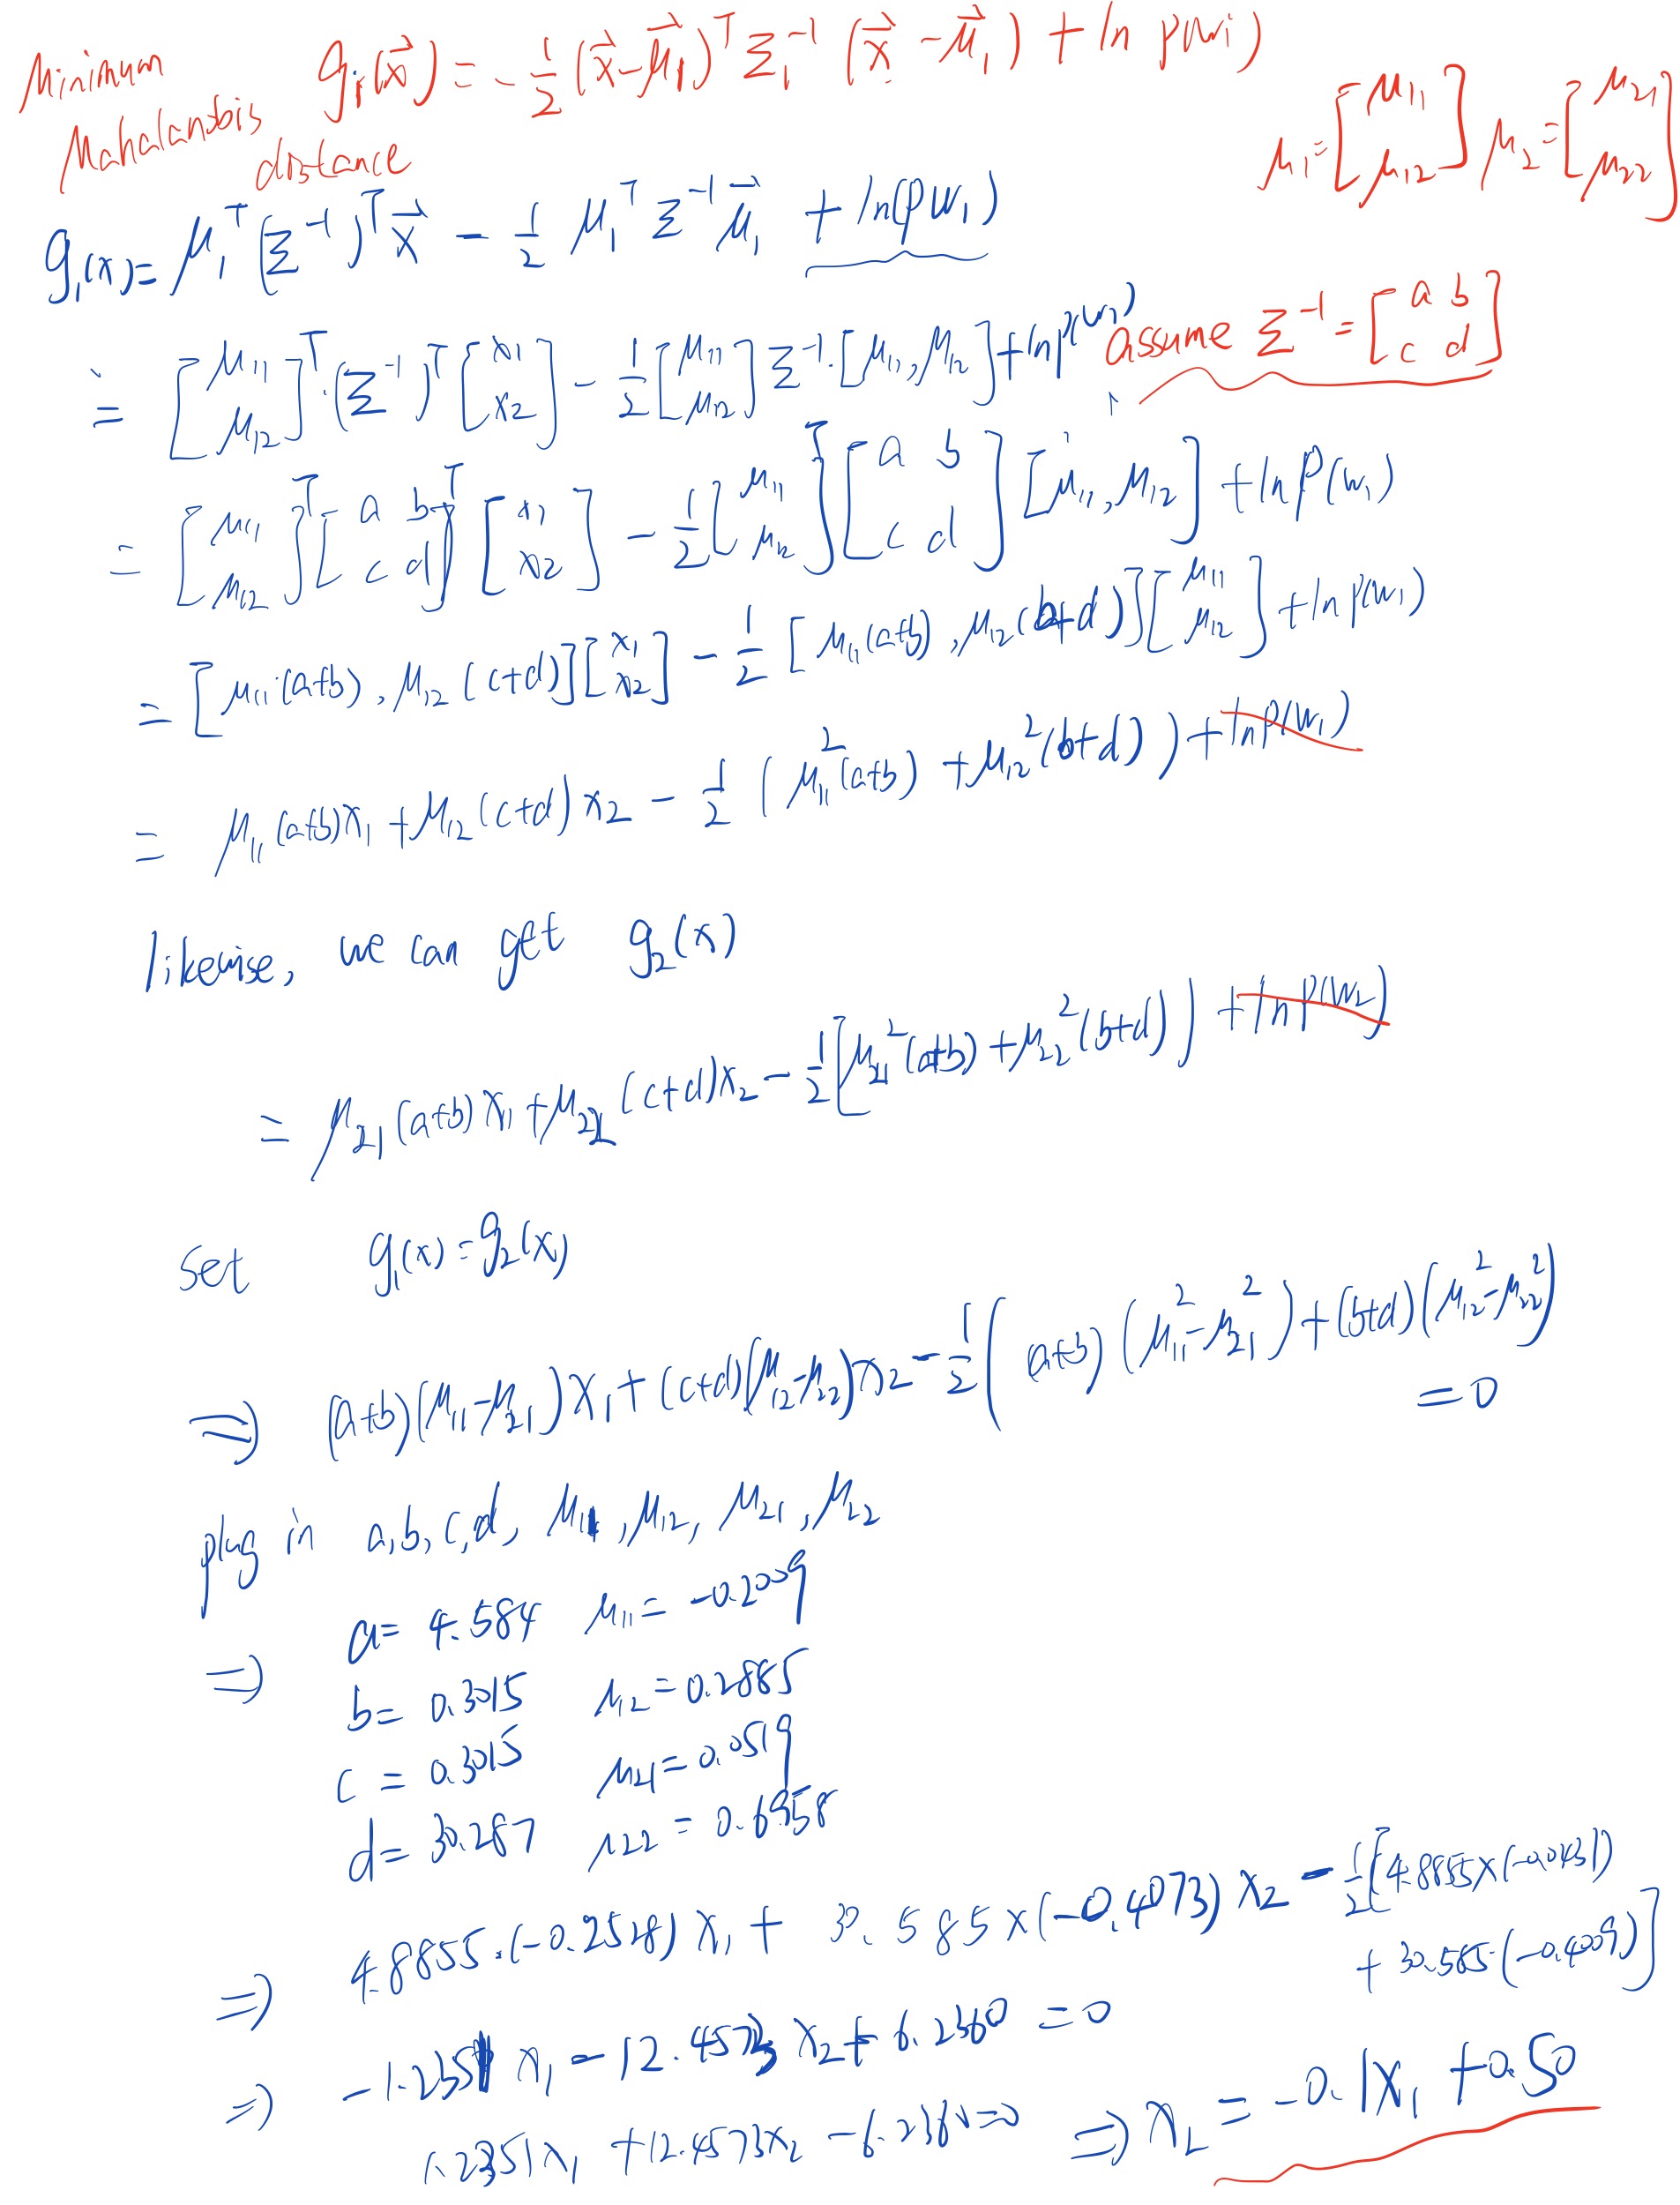 Minimum
Mahalanobis
distance
gᵢ(x⃗) = -1/2 (x⃗-μ⃗₁)ᵀ Σ₁⁻¹ (x⃗ -μ⃗₁) + ln p(wi)
μ₁=[μ₁₁ μ₁₂] μ₂=[μ₂₁ μ₂₂]
g₁(x)= μ₁ᵀ(Σ⁻¹)ᵀx⃗ - 1/2 μ₁ᵀ Σ⁻¹μ⃗₁ + ln(pw₁)
= [μ₁₁ μ₁₂]ᵀ·(Σ⁻¹)ᵀ[x₁ x₂] - 1/2[μ₁₁ μ₁₂] Σ⁻¹·[μ₁₁,μ₁₂]+ln p(w₁)
assume Σ⁻¹ = [a b c d]
= [μ₁₁ μ₁₂]ᵀ[a b c d]ᵀ[x₁ x₂] - 1/2[μ₁₁ μ₁₂]ᵀ[a b c d][μ₁₁,μ₁₂] + ln P(w₁)
= [μ₁₁(a+b), μ₁₂(c+d)][x₁ x₂] - 1/2[μ₁₁(a+b), μ₁₂(b+d)][μ₁₁ μ₁₂] + ln p(w₁)
= μ₁₁(a+b)x₁ + μ₁₂(c+d)x₂ - 1/2(μ₁₁²(a+b) + μ₁₂²(b+d)) + ln p(w₁)
likewise, we can get g₂(x)
= μ₂₁(a+b)x₁ + μ₂₂(c+d)x₂ - 1/2[μ₂₁²(a+b) + μ₂₂²(b+d)) + ln p(w₂)
set g₁(x)=g₂(x)
⇒ (a+b)(μ₁₁-μ₂₁)x₁ + (c+d)(μ₁₂-μ₂₂)x₂ - 1/2((a+b)(μ₁₁²-μ₂₁²)+(b+d)(μ₁₂²-μ₂₂²)
=0
plug in a,b,c,d, μ₁₁,μ₁₂, μ₂₁,μ₂₂
⇒ a= 4.584 μ₁₁= -0.2009
b= 0.3015 μ₁₂=0.2885
c= 0.3015 μ₂₁=0.0519
d= 30.287 μ₂₂=0.6958
⇒ 4.8855·(-0.2528)x₁+ 30.585×(-0.4073)x₂ - 1/2[4.8855×(-0.0431)
+ 30.585·(-0.4009)]
⇒ -1.2351x₁-12.4573x₂+6.2360=0
⇒ 1.2351x₁+12.4573x₂-6.236=0 ⇒ x₂ = -0.1x₁+0.50